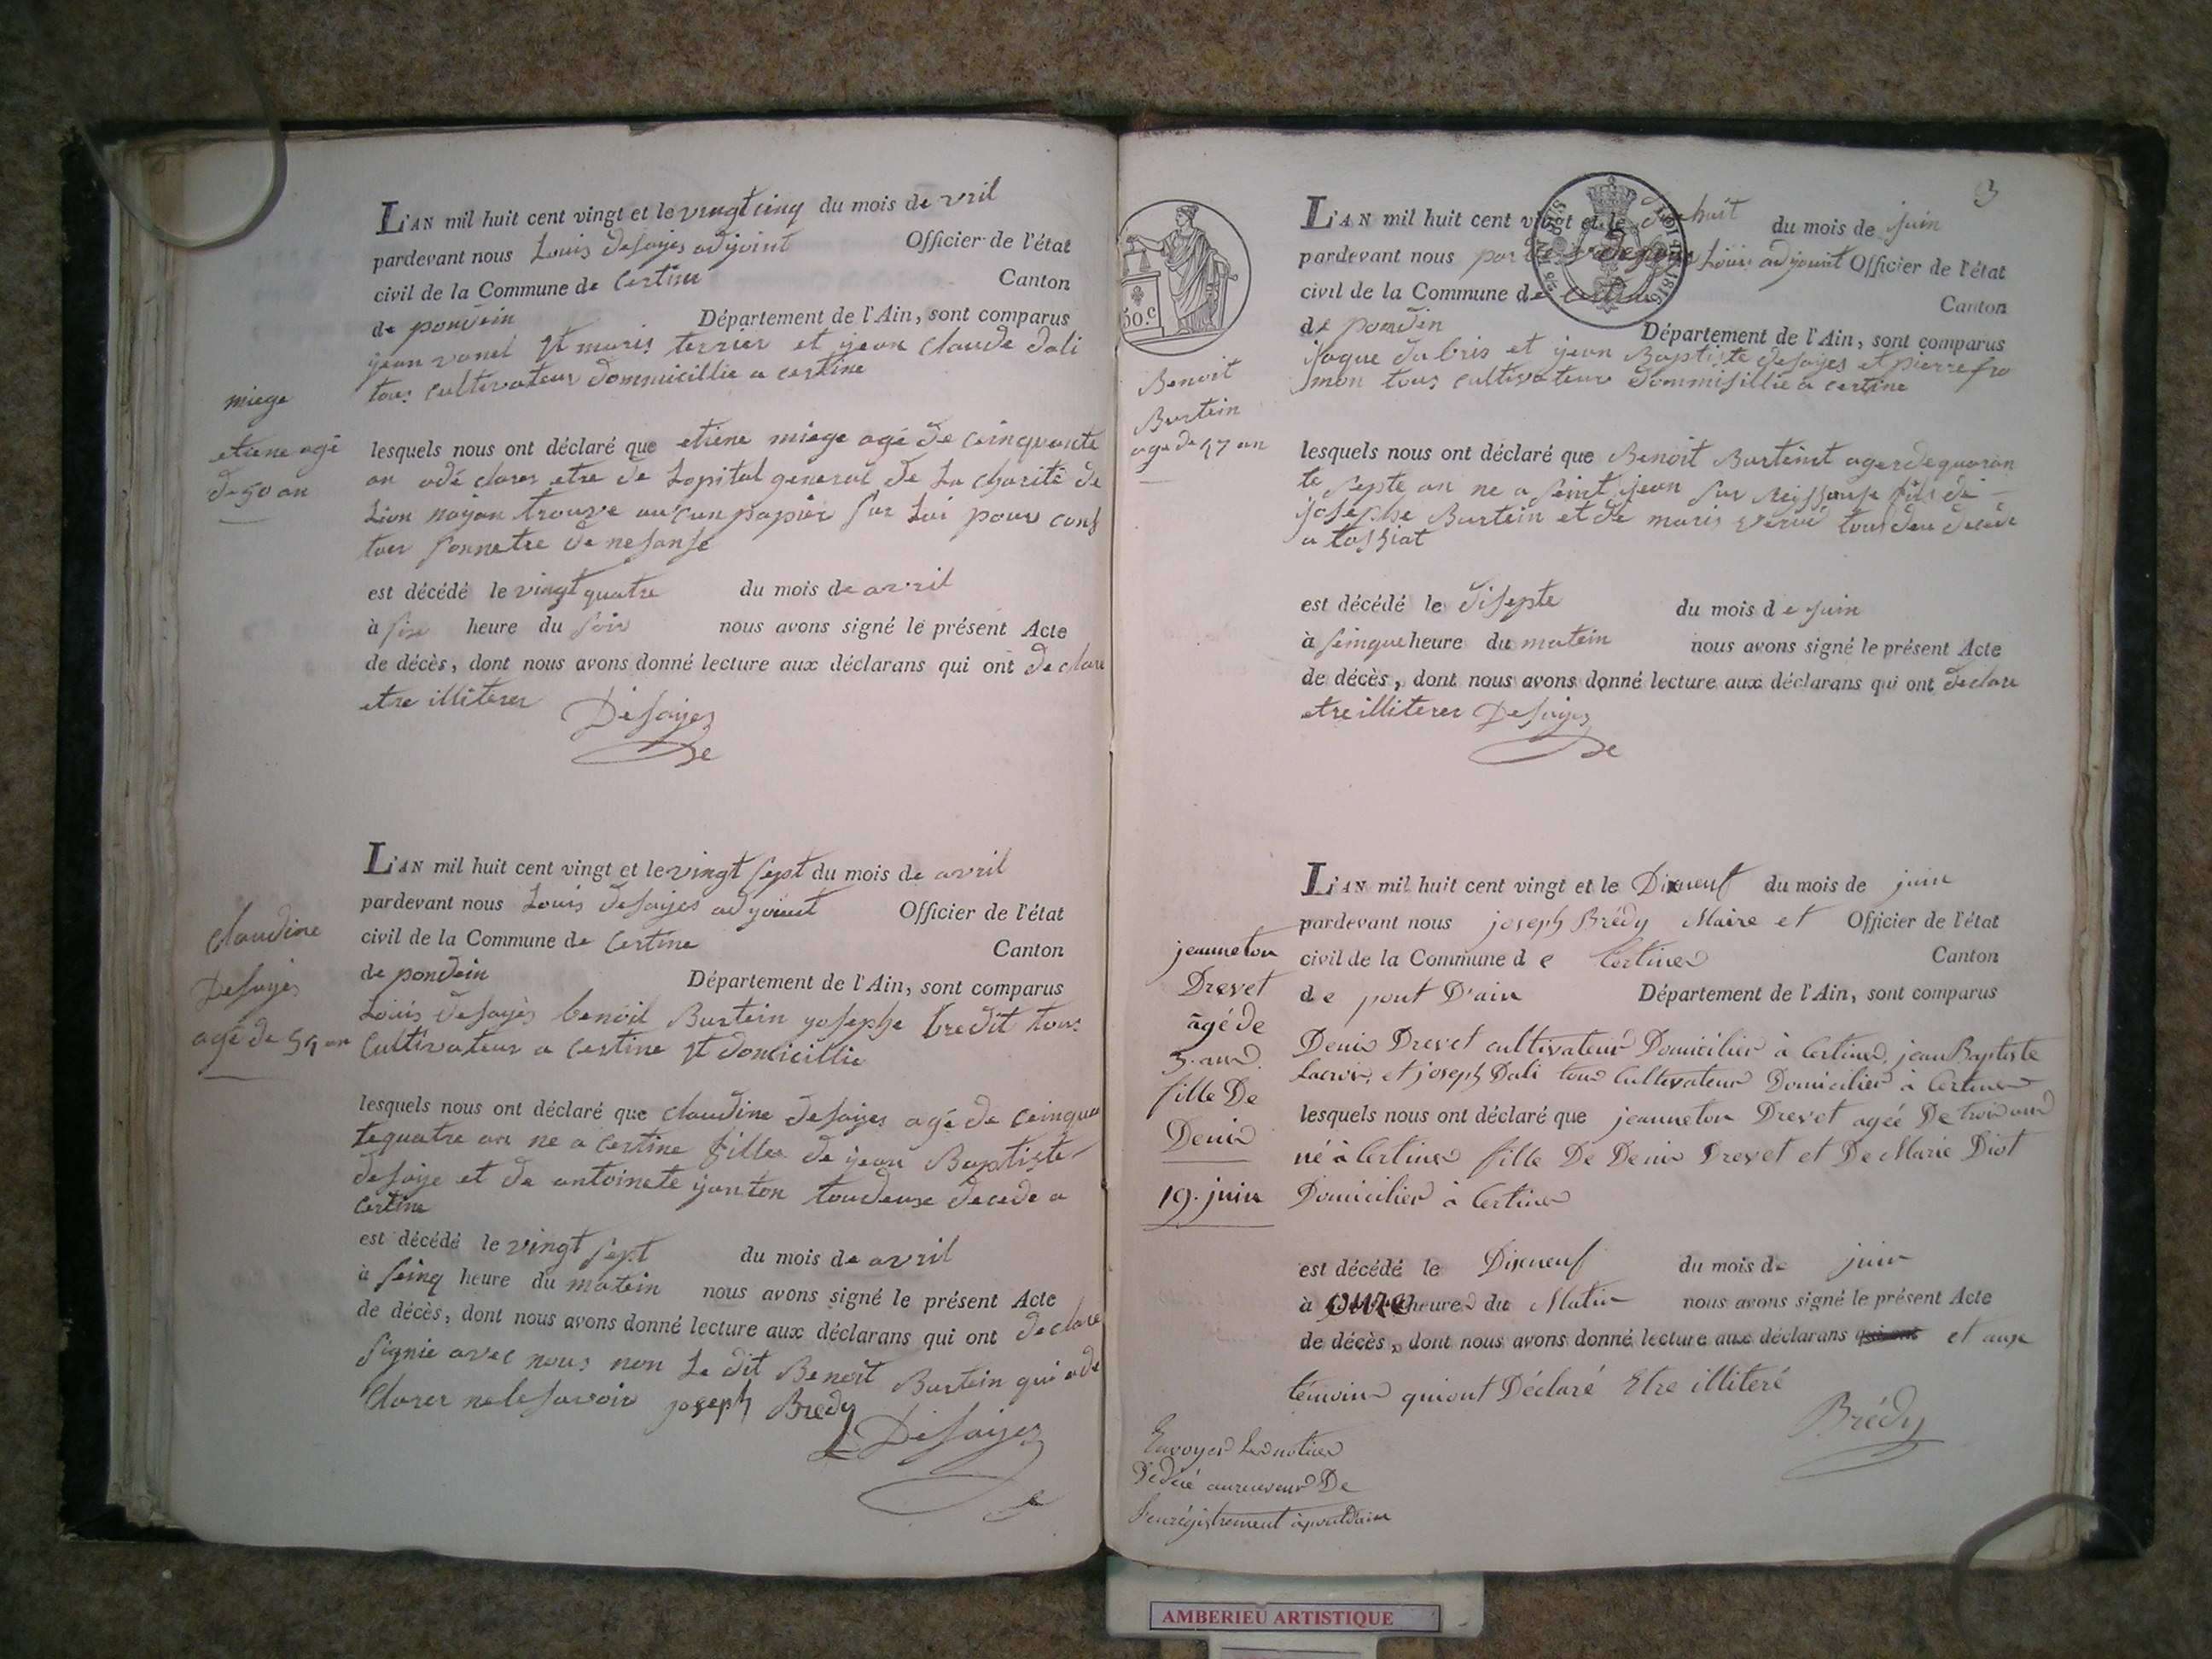 L'AN mil huit cent vingt et le vingt cinq du mois de vril
pardevant nous Louis desayes adjoint Officier de l'état
civil de la Commune de Certine Canton
de pondein Département de l'Ain, sont comparus
jean vanel et maris terrier et jean claude dali
tous cultivateur dommicillie a certine
miege
etiene agé
de 50 an
lesquels nous ont déclaré que etiene miege agé de cinquante
an adé clarer etre de Lopital general de La charité de
Lion nayan trouve aucun papier sur Lui pour cons
ter sonnetre de nesanse
est décédé le vingt quatre du mois de avril
à six heure du soir nous avons signé le présent Acte
de décès, dont nous avons donné lecture aux déclarans qui ont declare
etre illiterer Desayes
L'AN mil huit cent vingt et le vingt sept du mois de avril
pardevant nous Louis desayes adjoint Officier de l'état
civil de la Commune de Certine Canton
de pondein Département de l'Ain, sont comparus
Louis desayes benoit Burtein josephe bredit tous
cultivateur a certine et domicillie
claudine
Desayes
agé de 54 an
lesquels nous ont déclaré que claudine desayes agé de ceinquan
tequatre an ne a certine fille de jean Baptiste
desaye et de antoinete janton toudeuse decede a
certine
est décédé le vingt sept du mois de avril
à seinq heure du matein nous avons signé le présent Acte
de décès, dont nous avons donné lecture aux déclarans qui ont declare
signie avec nous non Le dit Benoit Burtein qui adé
clarer nele savoir joseph Bredy
Desayes
3
L'AN mil huit cent vingt et le dix huit du mois de juin
pardevant nous par de desayes Louis adjouit Officier de l'état
civil de la Commune de Certine Canton
de pondin Département de l'Ain, sont comparus
jaque dubris et jean Baptiste desayes et pierre fro
mon tous cultivateur dommisillie a certine
50.c
Benoit
Burtein
age de 47 an
lesquels nous ont déclaré que Benoit Burtinet ager de quaran
te septe an ne a seint jean sur Reissouse fils de
josephe Burtein et de maris tous deu decede
a tossiat
est décédé le disepte du mois de juin
à seinque heure du matein nous avons signé le présent Acte
de décès, dont nous avons donné lecture aux déclarans qui ont declare
etre illiterer Desayes
L'AN mil huit cent vingt et le Dixneuf du mois de juin
pardevant nous joseph Brédy Maire et Officier de l'état
civil de la Commune de Certines Canton
de pont D'ain Département de l'Ain, sont comparus
Denis Drevet cultivateur Domicilier à Certines, jean Baptiste
Lacroix, et joseph Dali tous Cultivateur Domicilier à Certines
jeanneton
Drevet
âgé de
3. ans.
fille De
Denis
19. juin
lesquels nous ont déclaré que jeanneton Drevet agée De trois ans
né à Certines fille De Denis Drevet et De Marie Diot
Domicilier à Certines
est décédé le Dixneuf du mois de juin
à onze heures du Matin nous avons signé le présent Acte
de décès, dont nous avons donné lecture aux déclarans qui ont et aux
témoins qui ont Déclaré Etre illiteré
Brédy
Envoyer Les notices
Dédécé aureceveur De
l'enrégistrement à pontdain
AMBERIEU ARTISTIQUE